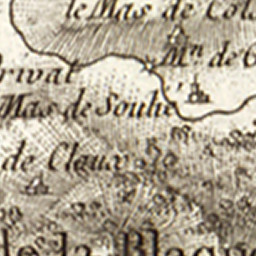 le Mas de Col
Mⁿ. de
rival
Mas de Souhe
de Claux
de la Blaqu